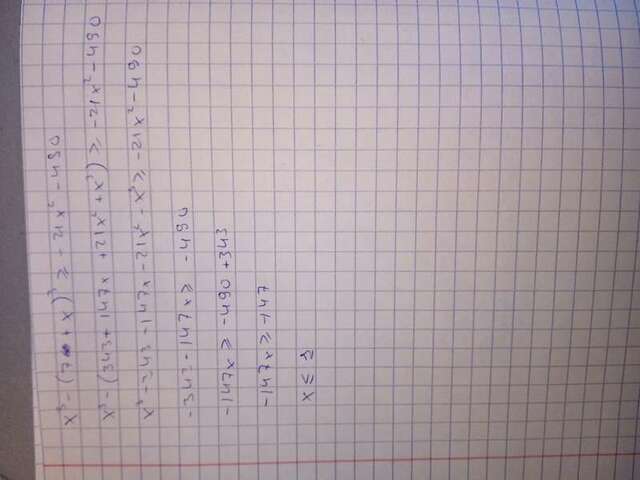 x³ - (7 + x)³ ≥ -21x² - 490
x³ - (343 + 147x + 21x² + x³) ≥ -21x² - 490
x³ - 343 - 147x - 21x² - x³ ≥ -21x² - 490
-343 - 147x ≥ -490
-147x ≥ -490 + 343
-147x ≥ -147
x ≤ 1